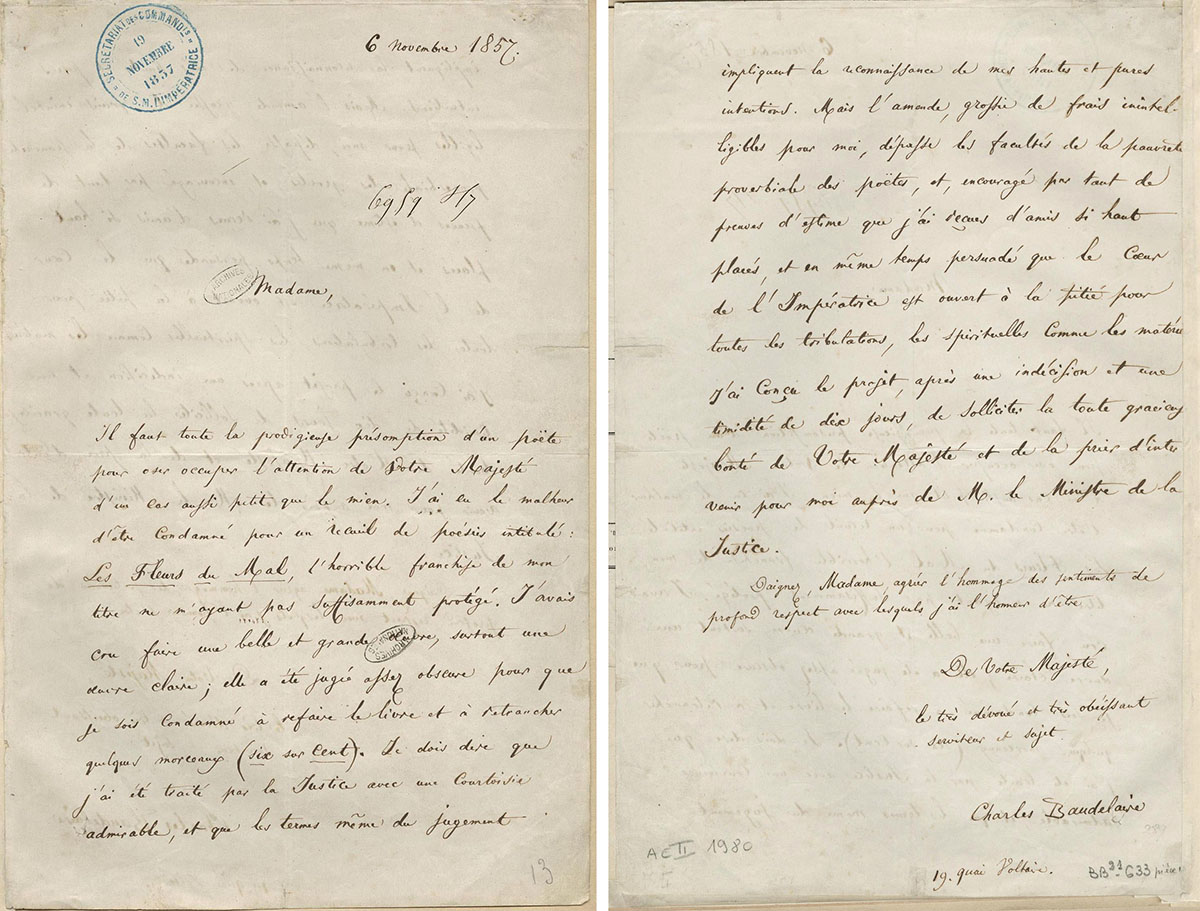 SECRETARIAT DES COMMANDts
19
NOVEMBRE
1857
DE S. M. L'IMPÉRATRICE
6 Novembre 1857.
6959 H7
ARCHIVES
NATIONALES
Madame,
Il faut toute la prodigieuse présomption d'un poëte
pour oser occuper l'attention de Votre Majesté
d'un cas aussi petit que le mien. J'ai eu le malheur
d'être condamné pour un recueil de poésies intitulé :
Les Fleurs du Mal, l'horrible franchise de mon
titre ne m'ayant pas suffisamment protégé. J'avais
cru faire une belle et grande œuvre, surtout une
œuvre claire ; elle a été jugée assez obscure pour que
je sois condamné à refaire le livre et à retrancher
quelques morceaux (six sur cent). Je dois dire que
j'ai été traité par la Justice avec une courtoisie
admirable, et que les termes même du jugement
ARCHIVES
NATIONALES
13
impliquent la reconnaissance de mes hautes et pures
intentions. Mais l'amende, grossie de frais inintel-
ligibles pour moi, dépasse les facultés de la pauvreté
proverbiale des poëtes, et, encouragé par tant de
preuves d'estime que j'ai reçues d'amis si haut
placés, et en même temps persuadé que le Cœur
de l'Impératrice est ouvert à la pitié pour
toutes les tribulations, les spirituelles comme les matérie
j'ai conçu le projet, après une indécision et une
timidité de dix jours, de solliciter la toute gracieus
bonté de Votre Majesté et de la prier d'inter
venir pour moi auprès de M. le Ministre de la
Justice.
Daignez, Madame, agréer l'hommage des sentiments de
profond respect avec lesquels j'ai l'honneur d'être
De Votre Majesté,
le très dévoué et très obéissant
serviteur et sujet
Charles Baudelaire
19. quai Voltaire.
AE II 1980
BB 21 633 pièce